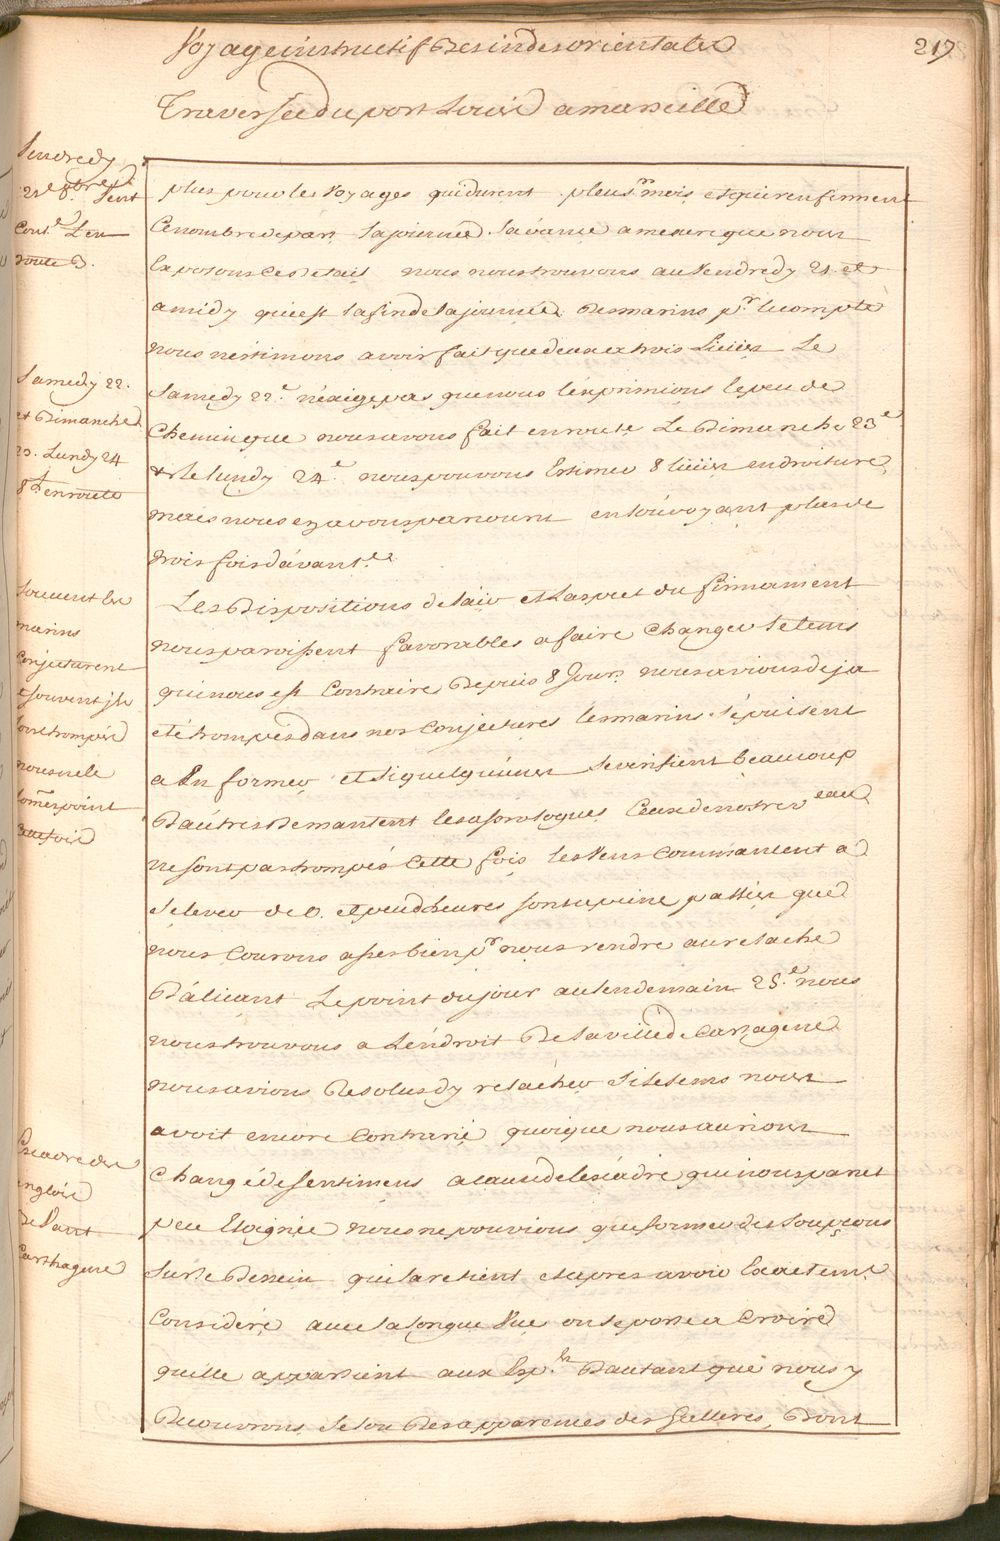 Voyage instructif Des indes orientales
217
Traversée du port Louis a marseille
Vendredy
21e 8bre Vent
Cont.e L'en
route 3.
plus pour les Voyages qui durent plus.rs mois et qui renferment
Ce nombre de pars la journée s'avance a mesure que nous
Exposons ce Detail nous nous trouvons au Vendredy 21. et
a midy qui est la fin de la journée Des marins p.r le compte
nous n'estimons avoir fait que deux a trois Lieües Le
Samedy 22.e n'éxige pas que nous l'exprimions le peu de
Samedy 22.
et Dimanche
23. Lundy 24
8 L. en route
Chemin que nous avons fait en route Le Dimanche 23e
et le lundy 24.e nous pouvons Estimer 8 lieües en droiture
mais nous en avons parcourut en louvoyant plus de
trois fois d'avant.ge
Souvent les
marins
conjecturent
et souvent ils
sont trompés
nous ne le
somes point
cette fois
Les Dispositions de l'air et l'aspect du firmament
nous paroissent favorables a faire changer le tems
qui nous est Contraire Depuis 8 Jours nous avions deja
eté trompés dans nos conjectures les marins s'épuisent
a En former et si quelqu'unes se verifient beaucoup
D'autres Demantent les astrologues Ceux de nostre v.eau
ne sont pas trompés cette fois les Vens commancent a
s'elever de O. et peu d'heures sont a peine passées que
nous courons asses bien p.r nous rendre au relache
D'alicant Le point du jour au lendemain 25.e nous
nous trouvons a L'endroit De la ville de Cartagene
nous avions Resolus d'y relacher si le tems nous
avoit encore Contrarié quoique nous aurions
Escadre des
anglois
Devant
Carthagene
Changé de sentimens a cause de l'escadre qui nous paret
peu Eloignée nous ne pouvions que former des soupçons
sur le Dessein qui la retient et apres avoir Exactem.t
Considéré avec la longue Vue on se porte a Croire
qu'elle appartient aux Esp.ls D'autant que nous y
Decouvrons selon Des apparences des Galleres, Dont